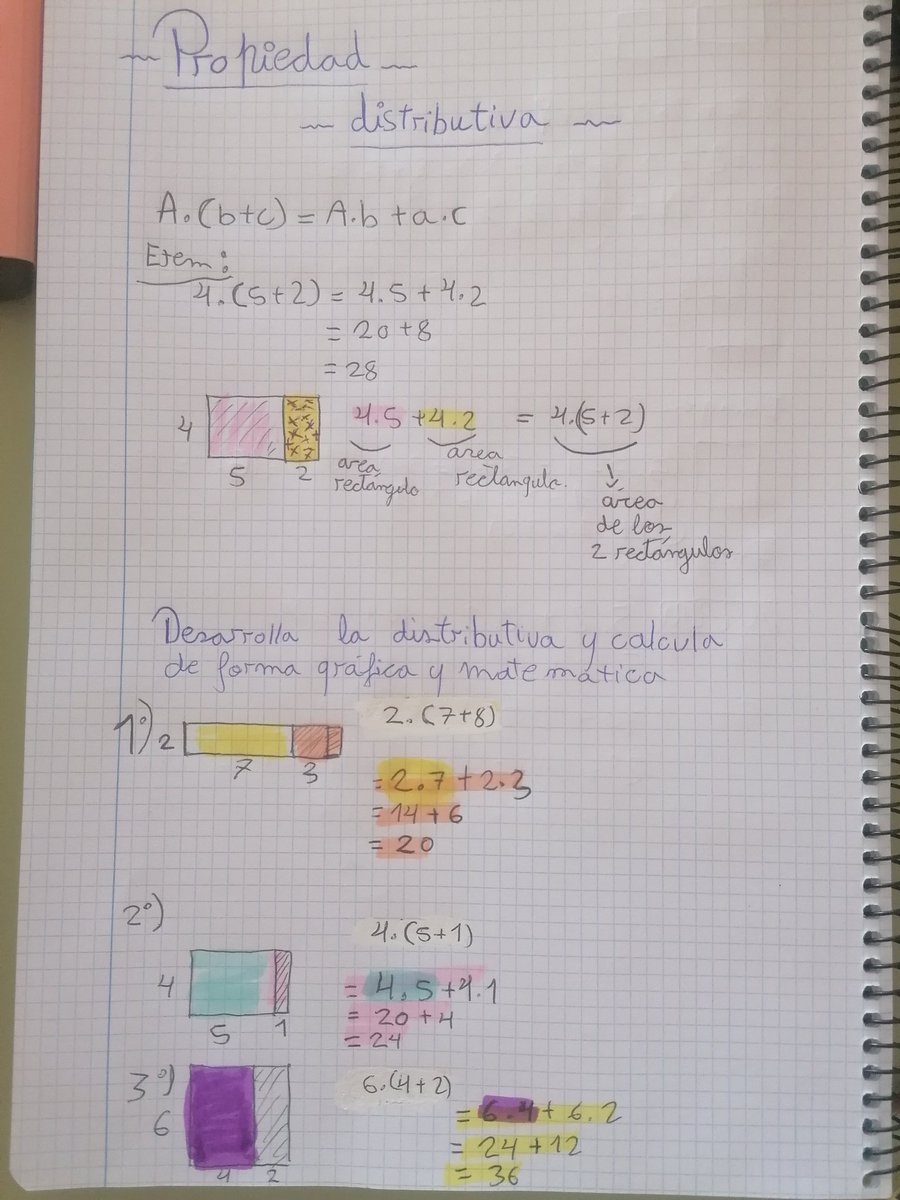 Propiedad
distributiva
A.(b+c) = A.b + a.c
Ejem:
4.(5+2) = 4.5 + 4.2
= 20 + 8
= 28
4
5
2
4.5 + 4.2 = 4.(5+2)
área
rectángulo
área
rectangula.
área
de los
2 rectángulos
Desarrolla la distributiva y calcula
de forma gráfica y matemática
1º)
2
7
3
2.(7+8)
= 2.7 + 2.3
= 14 + 6
= 20
2º)
4
5
1
4.(5+1)
= 4.5 + 4.1
= 20 + 4
= 24
3º)
6
4
2
6.(4+2)
= 6.4 + 6.2
= 24 + 12
= 36